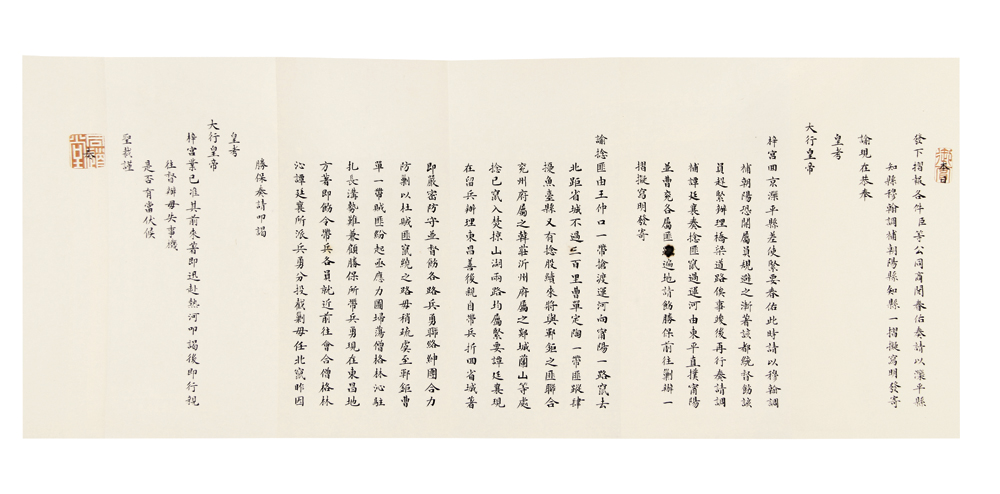 本日
發下摺報各件臣等公同商閱春佑奏請以灤平縣
知縣穆翰調補朝陽縣知縣一摺擬寫明發寄
諭現在恭奉
皇考
大行皇帝
梓宮回京灤平縣差使緊要春佑此時請以穆翰調
補朝陽恐開屬員規避之漸著該都統督飭該
員趕緊辦理橋梁道路俟事竣後再行奏請調
補譚廷襄奏捻匪竄過運河由東平直撲甯陽
並曹兗各屬匪遍地請飭勝保前往剿辦一
摺擬寫明發寄
諭捻匪由王仲口一帶搶渡運河向甯陽一路竄去
北距省城不過三百里曹單定陶一帶匪蹤肆
擾魚臺縣又有捻股續來將與鄆鉅之匪聯合
兗州府屬之韓莊沂州府屬之郯城蘭山等處
捻已竄入焚掠山湖兩路均屬緊要譚廷襄現
在留兵辦理東昌善後親自帶兵折回省城著
即嚴密防守並督飭各路兵勇聯絡紳團合力
防剿以杜賊匪竄繞之路毋稍疏虞至鄆鉅曹
單一帶賊匪紛起亟應力圖掃蕩僧格林沁駐
扎長溝勢難兼顧勝保所帶兵勇現在東昌地
方著即飭令帶兵各員就近前往會合僧格林
沁譚廷襄所派兵勇分投截剿毋任北竄昨因
勝保奏請叩謁
皇考
大行皇帝
梓宮業已准其前來著即迅赴熱河叩謁後即行視
往督辦毋失事機
是否有當伏候
聖裁謹
奏